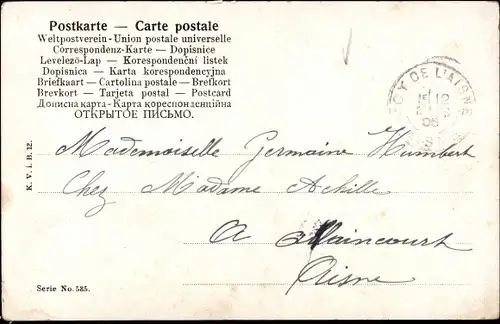 Postkarte — Carte postale
Weltpostverein - Union postale universelle
Correspondenz-Karte — Dopisnice
Levelező-Lap — Korespondenční listek
Dopisnica — Karta korespondencyjna
Briefkaart — Cartolina postale — Brefkort
Brevkort — Tarjeta postal — Postcard
Дописна карта - Карта кореспонденційна
ОТКРЫТОЕ ПИСЬМО.
OY DE L'AISNE
15 12
05
K. V. i. B. 12.
Mademoiselle Germaine Humbert
Chez Madame Achille
A Allaincourt
Aisne
Serie No. 585.